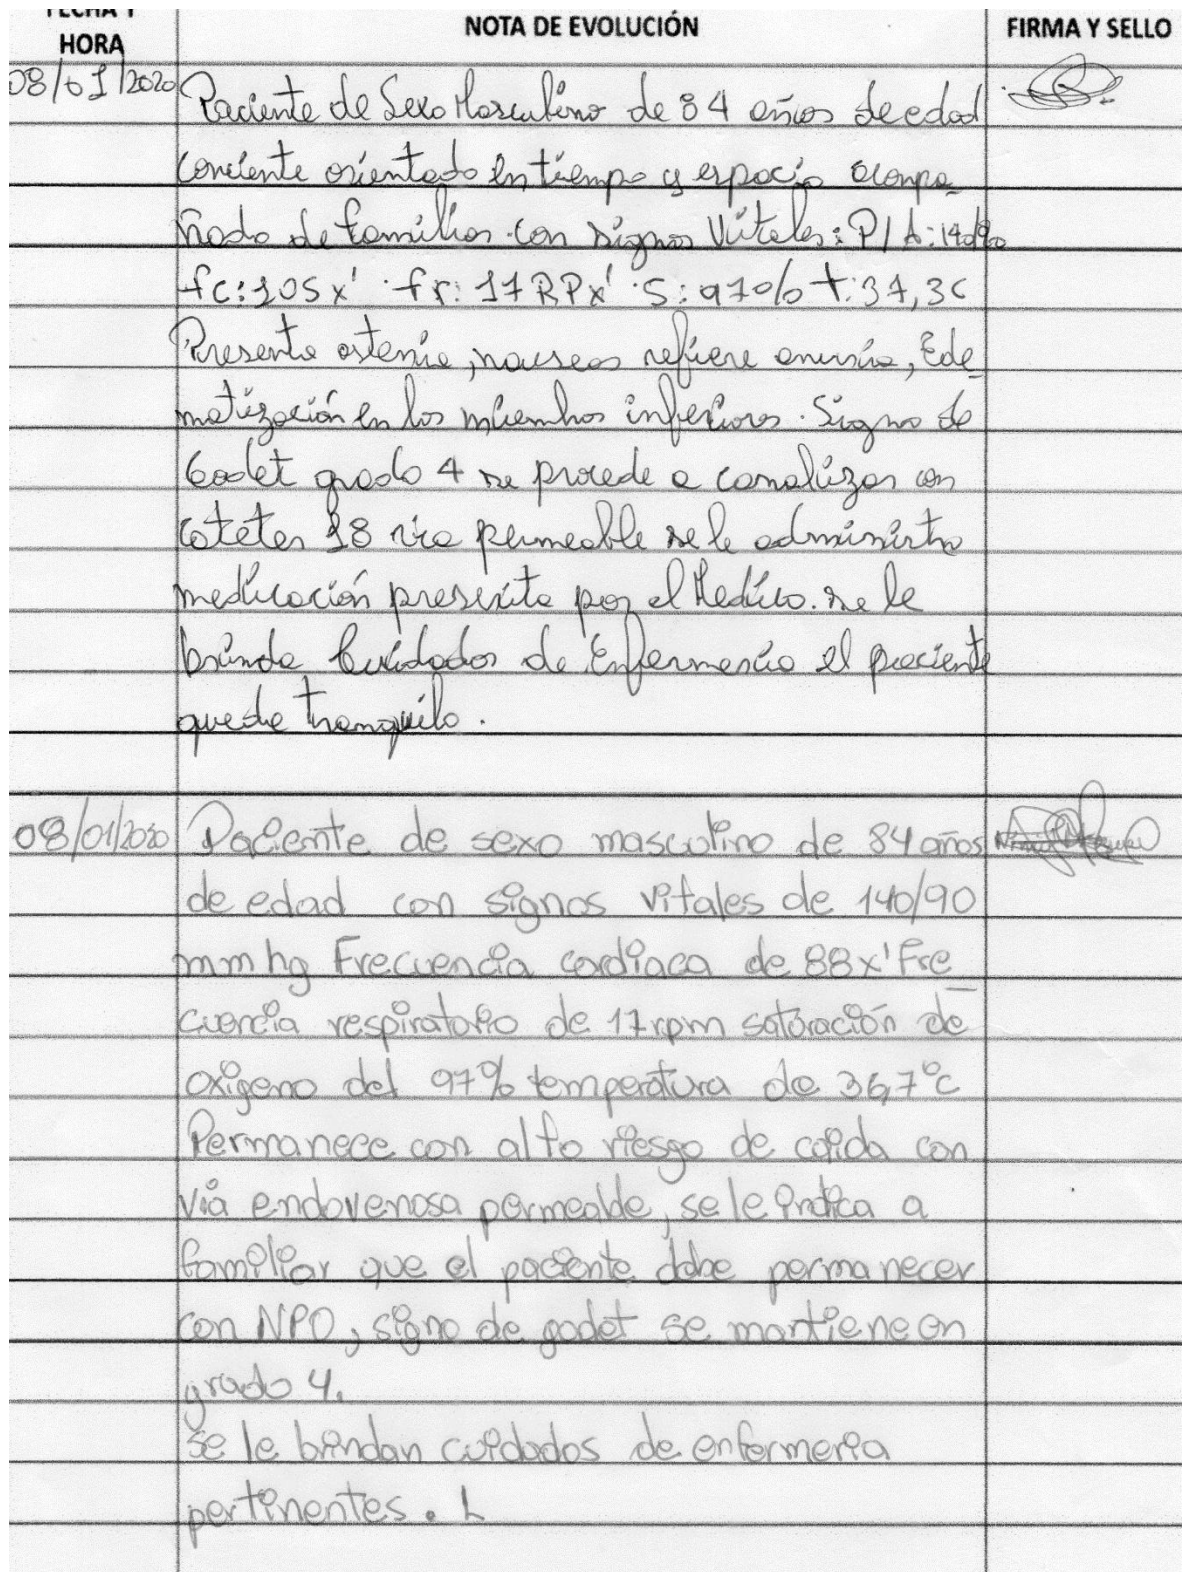 FECHA Y
HORA
NOTA DE EVOLUCIÓN
FIRMA Y SELLO
08/01/2020
Paciente de Sexo Masculino de 84 años de edad
conciente orientado en tiempo y espacio acompa-
ñado de familiar con signos Vitales: P/A: 140/90
fc: 105 x' fr: 17 RPx' S: 97% t: 37,3C
Presenta astenia, nauseas refiere anuria, Ede-
matización en los miembros inferiores. Signo de
Godet grado 4 se procede a canalizar con
cateter 18 via permeable se le administra
medicación prescrita por el Medico. se le
brinda Cuidados de Enfermeria el paciente
queda tranquilo.
08/01/2020
Paciente de sexo masculino de 84 años
de edad con signos vitales de 140/90
mmhg Frecuencia cardiaca de 88x' Fre
cuencia respiratorio de 17 rpm saturación de
oxigeno del 97% temperatura de 36,7°c
Permanece con alto riesgo de caida con
via endovenosa permealde, se le indica a
familiar que el paciente debe permanecer
con NPO, signo de godet se mantiene en
grado 4.
se le brindan cuidados de enfermeria
pertinentes.